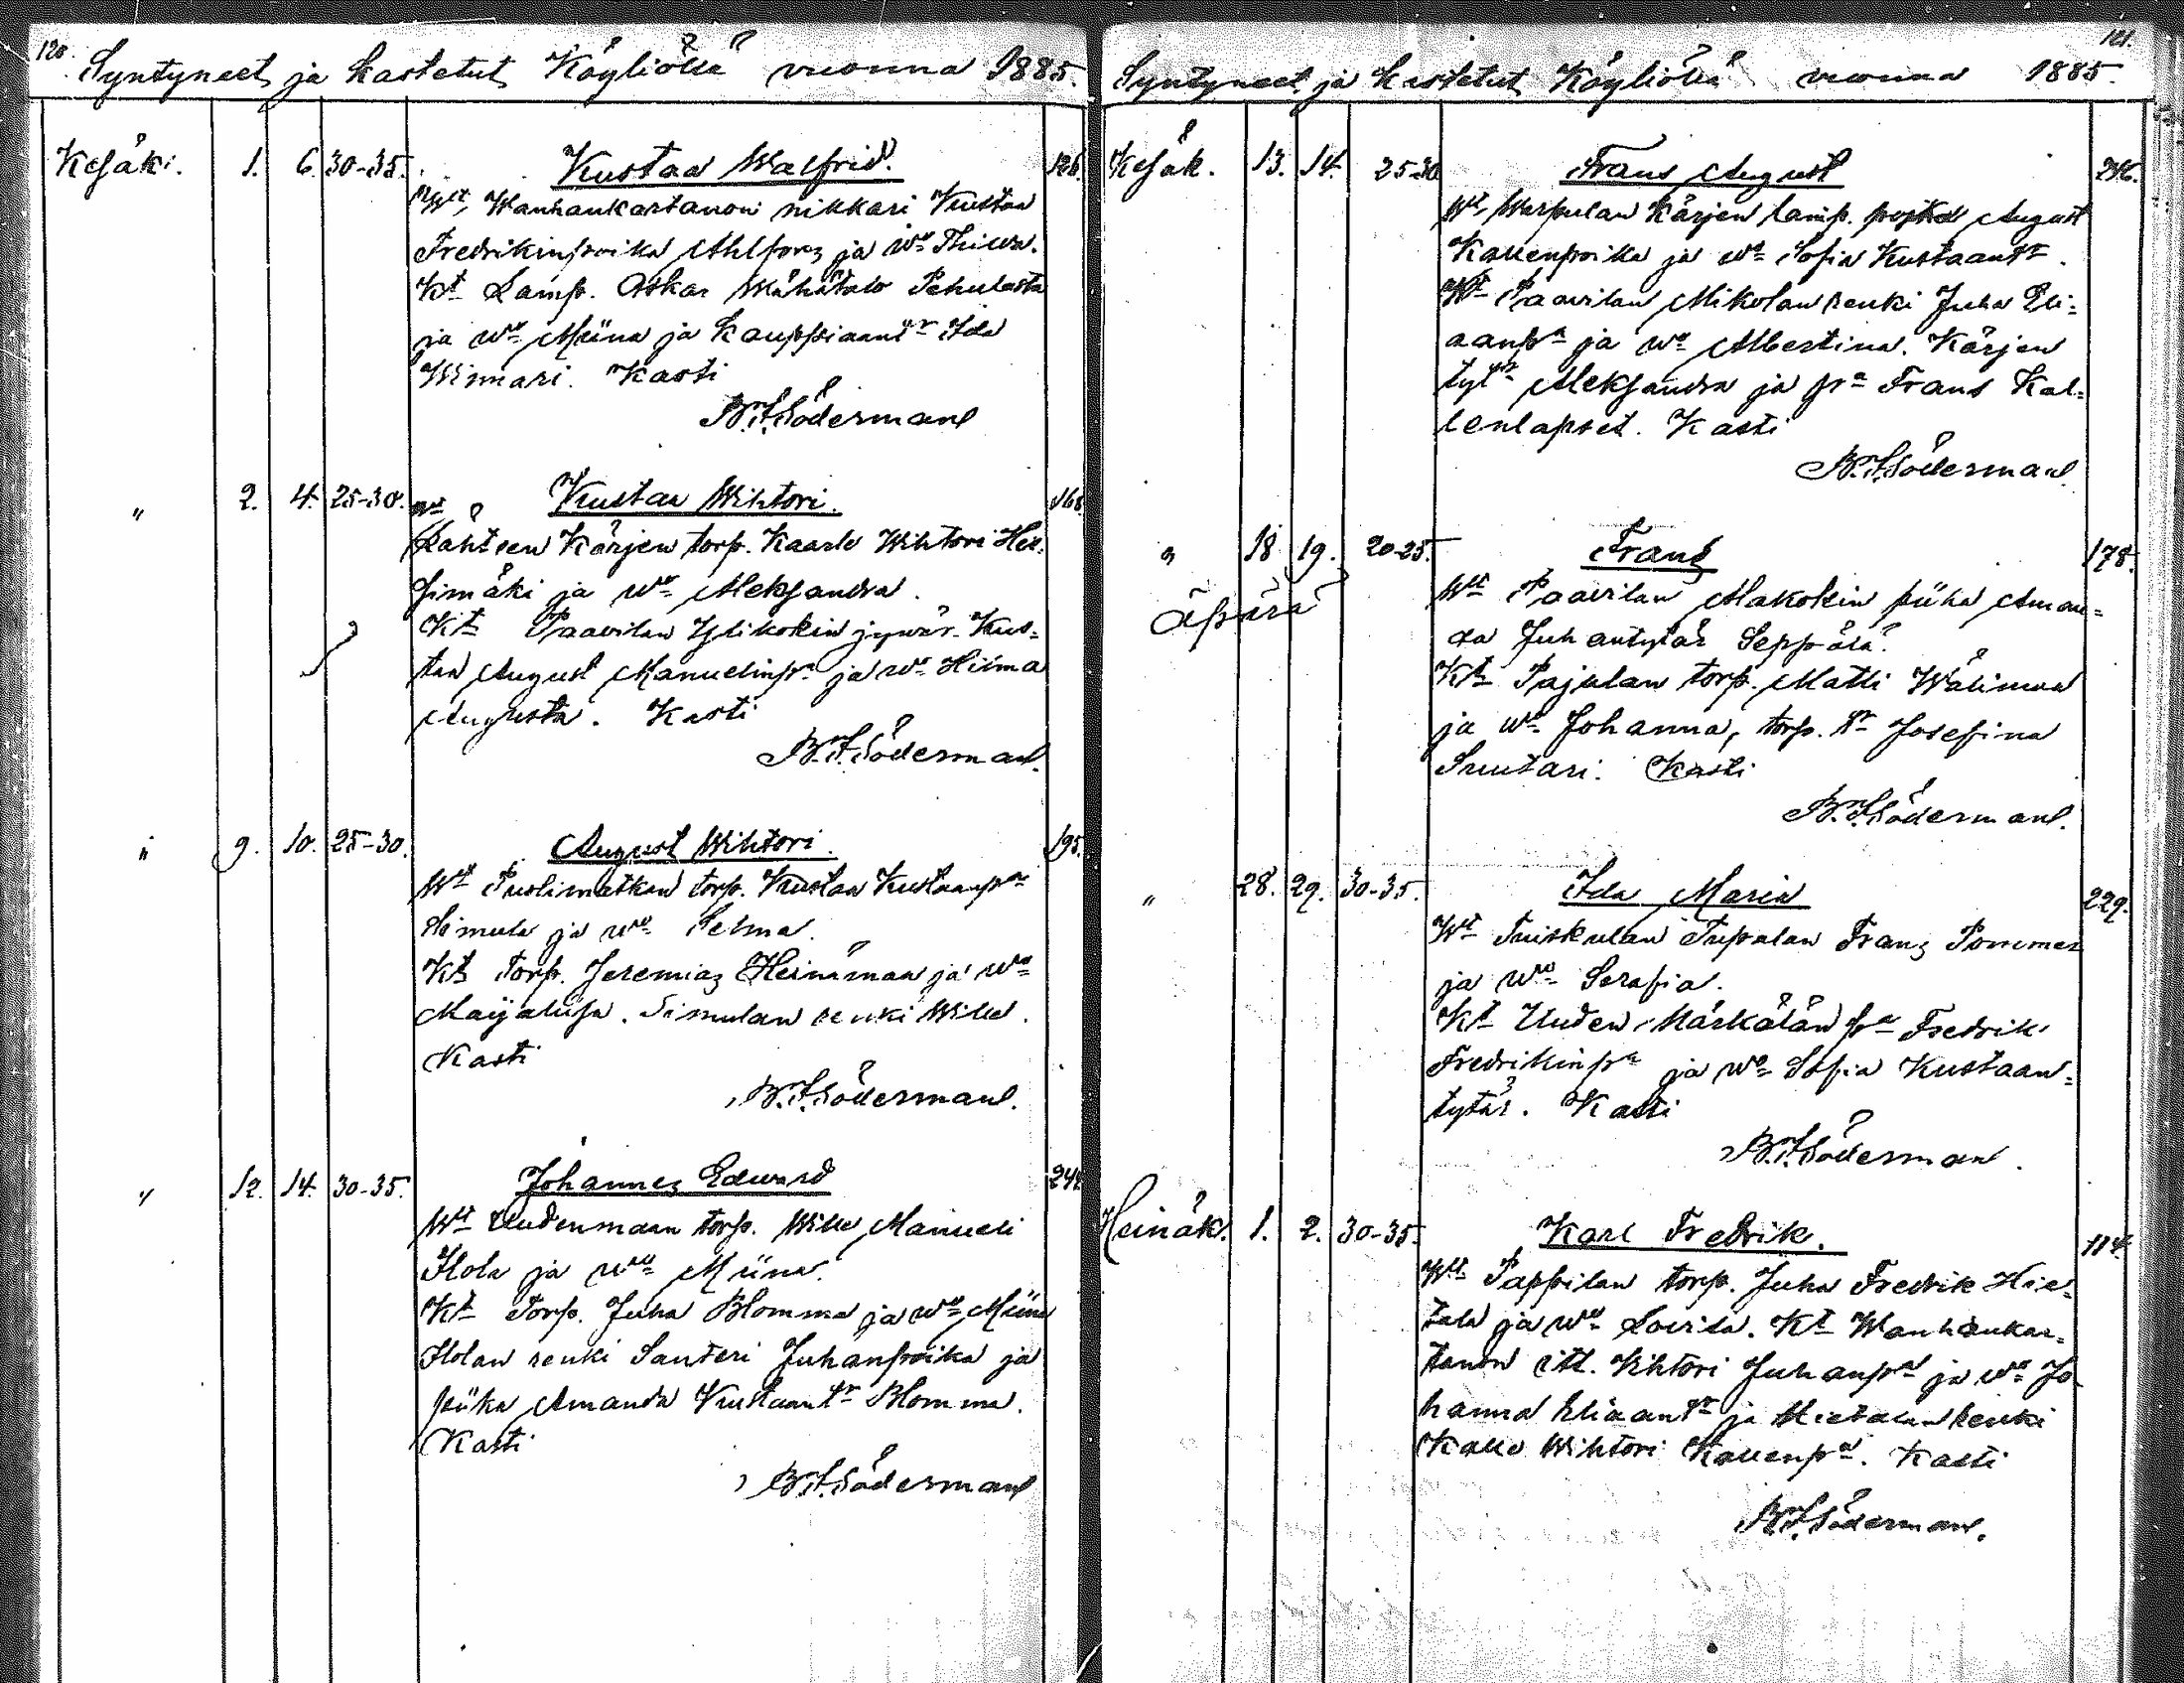 120.
Syntyneet ja kastetut Köyliössä vuonna 1885.
Kesäk. 1. 6. 30-35. Kustaa Walfrid. 126.
Wt. Wanhankartanon nikkari Kustaa
Fredrikinpoika Ahlfors ja wo
Kt Lamp. Oskar Mähätalo Pehulasta
ja wo Miina ja kauppiaantr Ida
Winnari. Kasti
B.F. Söderman
" 2. 4. 25-30. Kustaa Wihtori. 168.
Wt
Lähteen Kärjen torp. Kaarlo Wihtori Hei-
simäki ja wo Aleksandra.
Kt Paavilan Ylikokin jywär. Kus-
taa August Manuelinpa ja wo Hilma
Augusta. Kasti
B.F. Söderman.
" 9. 10. 25-30. August Wihtori. 195.
Wt Puolimatkan torp. Kustaa Kustaanpa
Simula ja wo Selma.
Kt Torp. Jeremias Heinämaa ja wo
Maijaliisa. Simulan renki Wille.
Kasti
B.F. Söderman.
" 12. 14. 30-35. Johannes Edward 244.
Wt Uudenmaan torp. Wille Manueli
Ilola ja wo Miina.
Kt Torp. Juha Blomma ja wo Miina
Ilolan renki Santeri Juhanpoika ja
piika Amanda Kustaantr Blomma.
Kasti
B.F. Söderman
121.
Syntyneet ja kastetut Köyliössä vuonna 1885.
Kesäk. 13. 14. 25-30 Frans August 246.
Wt. Warpulan Kärjen lamp. poika August
Kallenpoika ja wo Sofia Kustaantr.
Kt Paavilan Mikolan renki Juha Eli-
aanpa ja wo Albertina. Kärjen
tytr Aleksandra ja pa Frans Kal-
lenlapset. Kasti
B.F. Söderman
" 18 19. 20-25. Frans 178.
äpärä
Wt Paavilan Alakokin piika Aman-
da Juhantytär Seppälä.
Kt Pajulan torp. Matti Wälimaa
ja wo Johanna, torp. tr Josefina
Suutari. Kasti
B.F. Söderman.
" 28. 29. 30-35. Ida Maria 229.
Wt Tuiskulan Tupalan Frans Pommer
ja wo Serafia.
Kt Uuden Märkälän pa Fredrik
Fredrikinpa ja wo Sofia Kustaan-
tytär. Kasti
B.F. Söderman.
Heinäk. 1. 2. 30-35. Karl Fredrik. 114.
Wt Pappilan torp. Juha Fredrik Hie-
tala ja wo Lovisa. Kt Wanhankar-
tanon itl. Wihtori Juhanpa ja wo Jo-
hanna Eliaantr ja Hietalan renki
Kalle Wihtori Kallenpa. Kasti
B.F. Söderman.